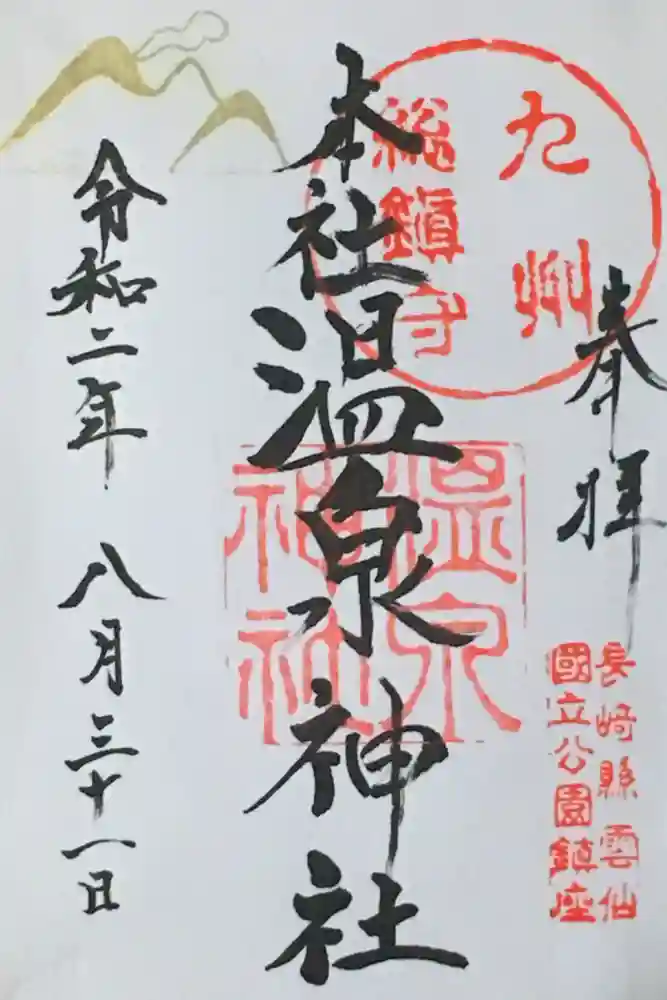 奉拝
九州
総鎮守
長崎縣雲仙
國立公園鎮座
本社温泉神社
温泉
神社
令和二年 八月三十一日